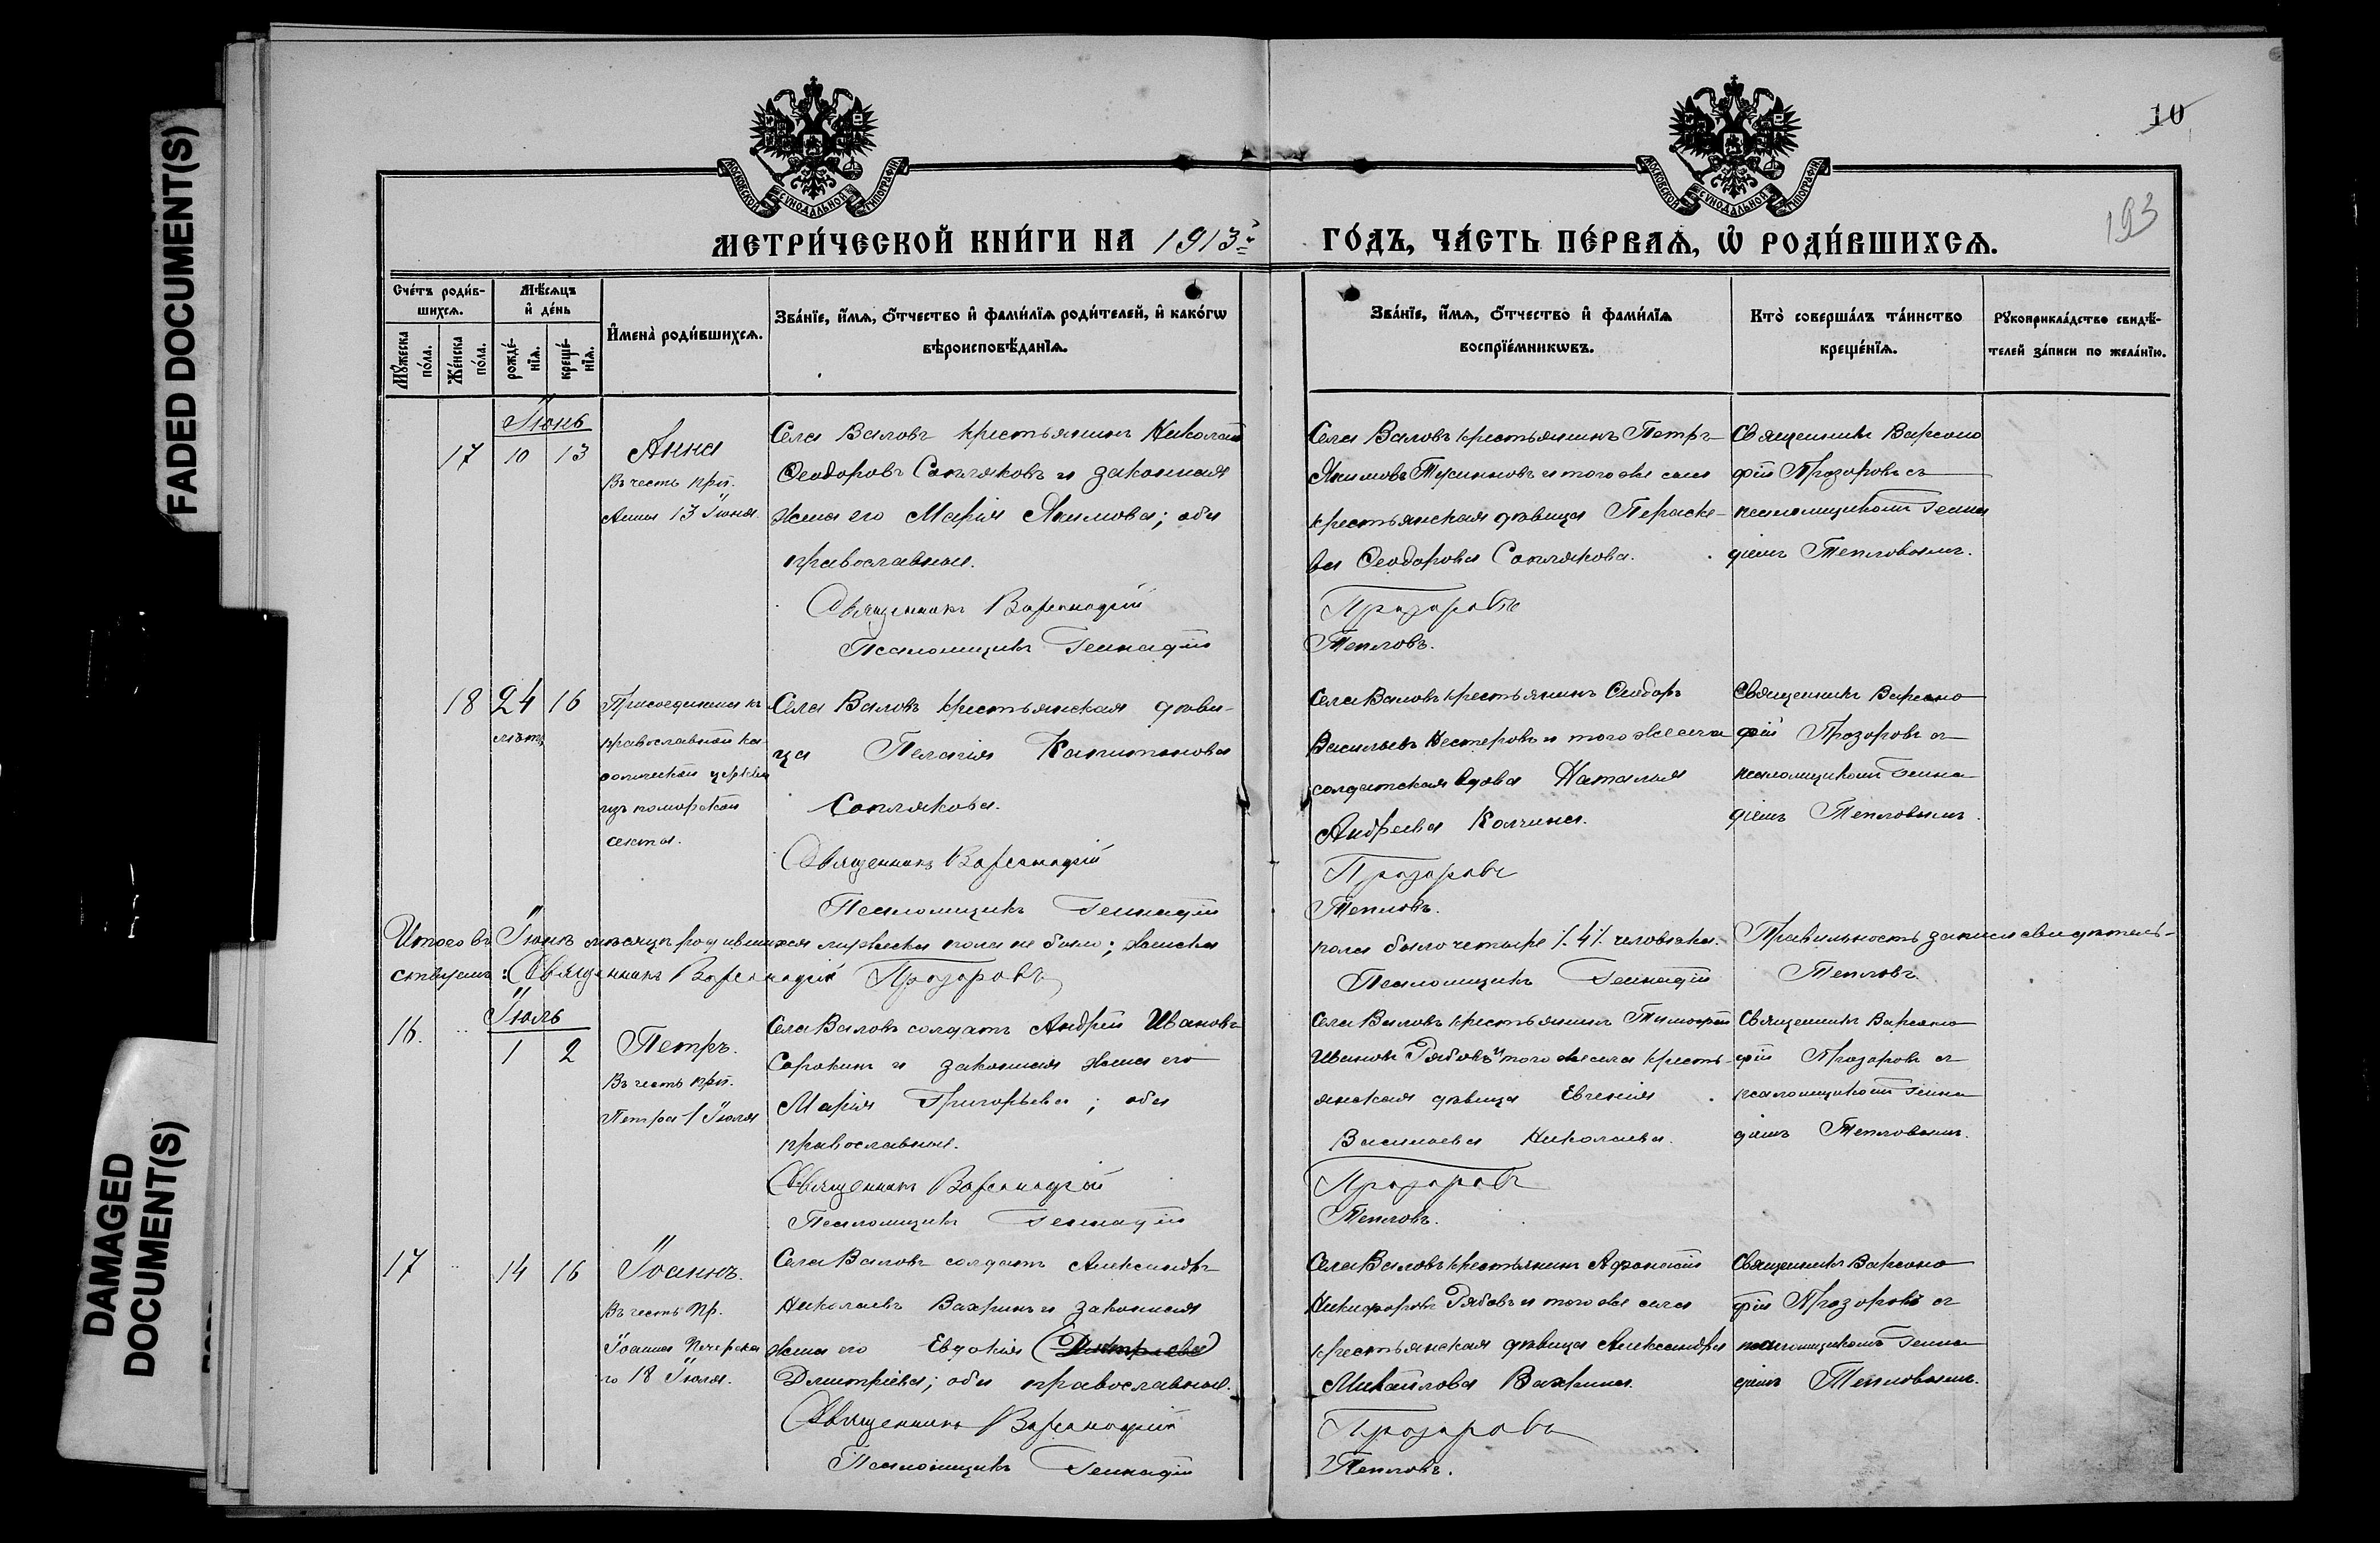 FADED DOCUMENT(S)
DAMAGED
DOCUMENT(S)
МОСКОВСКОЙ СѴНОДАЛЬНОЙ ТИПОГРАФІИ
МОСКОВСКОЙ СѴНОДАЛЬНОЙ ТИПОГРАФІИ
10
193
МЕТРИ́ЧЕСКОЙ КНИ́ГИ НА 1913й ГО́ДЪ, ЧА́СТЬ ПЕ́РВАѦ, Ѡ҆ РОДИ́ВШИХСѦ.
Сче́тъ роди́в-
шихсѧ.
Мꙋ́жеска по́ла.
Же́нска по́ла.
Мѣ́сѧцъ
и҆ де́нь
рожде́-
нїѧ.
креще́-
нїѧ.
И҆мена̀ роди́вшихсѧ.
Зва́нїе, и҆́мѧ, ѻ҆́тчество и҆ фами́лїѧ роди́телей, и҆ како́гѡ
вѣроисповѣ́данїѧ.
Зва́нїе, и҆́мѧ, ѻ҆́тчество и҆ фами́лїѧ
воспрїе́мникѡвъ.
Кто̀ соверша́лъ та́инство
креще́нїѧ.
Рꙋкоприкла́дство свидѣ́-
телей за́писи по жела́нїю.
Іюнь
17 10 13
Анна
Въ честь прп.
Анны 13 Іюня.
Села Валовъ крестьянинъ Николай
Ѳеодоровъ Сопляковъ и законная
жена его Марія Якимова; оба
православные.
Священникъ Варсонофій
Псаломщикъ Геннадій
Села Валовъ крестьянинъ Петръ
Якимовъ и того же села
крестьянская дѣвица Параске-
ва Ѳеодорова Соплякова.
Прозоровъ
Тепловъ.
Священникъ Варсоно
фій Прозоровъ съ
псаломщикомъ Генна
діемъ Тепловымъ.
18 24 16
лѣтъ
Присоединена къ
православной ка-
ѳолической церкви
изъ поморской
секты.
Села Валовъ крестьянская дѣви-
ца Пелагія Капитонова
Соплякова.
Священникъ Варсонофій
Псаломщикъ Геннадій
Села Валовъ крестьянинъ Ѳеодоръ
Васильевъ Нестеровъ и того же села
солдатская вдова Наталья
Андреева Колчина.
Прозоровъ
Тепловъ.
Священникъ Варсоно
фій Прозоровъ съ
псаломщикомъ Генна
діемъ Тепловымъ.
Итого въ Іюнѣ мѣсяцѣ родившихся мужеска пола не было; женска пола было четыре /. 4 /. человѣка. Правильность записи свидѣтель-
ствуемъ: Священникъ Варсонофій Прозоровъ Псаломщикъ Геннадій Тепловъ.
Іюль
16. " 1 2
Петръ.
Въ честь прп.
Петра 1 Іюля
Села Валовъ солдатъ Андрей Ивановъ
Сорокинъ и законная жена его
Марія Григорьева; оба
православные.
Священникъ Варсонофій
Псаломщикъ Геннадій
Села Валовъ крестьянинъ Тимофей
Ивановъ Рябовъ и того же села кресть-
янская дѣвица Евгенія
Васильева Николаева.
Прозоровъ
Тепловъ.
Священникъ Варсоно
фій Прозоровъ съ
псаломщикомъ Генна
діемъ Тепловымъ.
17 " 14 16
Іоаннъ.
Въ честь Пр.
Іоанна Печерска
го 18 Іюля.
Села Валовъ солдатъ Александръ
Николаевъ Вахринъ и законная
жена его Евдокія
Димитріева; оба православные.
Священникъ Варсонофій
Псаломщикъ Геннадій
Села Валовъ крестьянинъ Афонасій
Никифоровъ Рябовъ и того же села
крестьянская дѣвица Александра
Михайлова Вахрина.
Прозоровъ
Тепловъ.
Священникъ Варсоно
фій Прозоровъ съ
псаломщикомъ Генна
діемъ Тепловымъ.